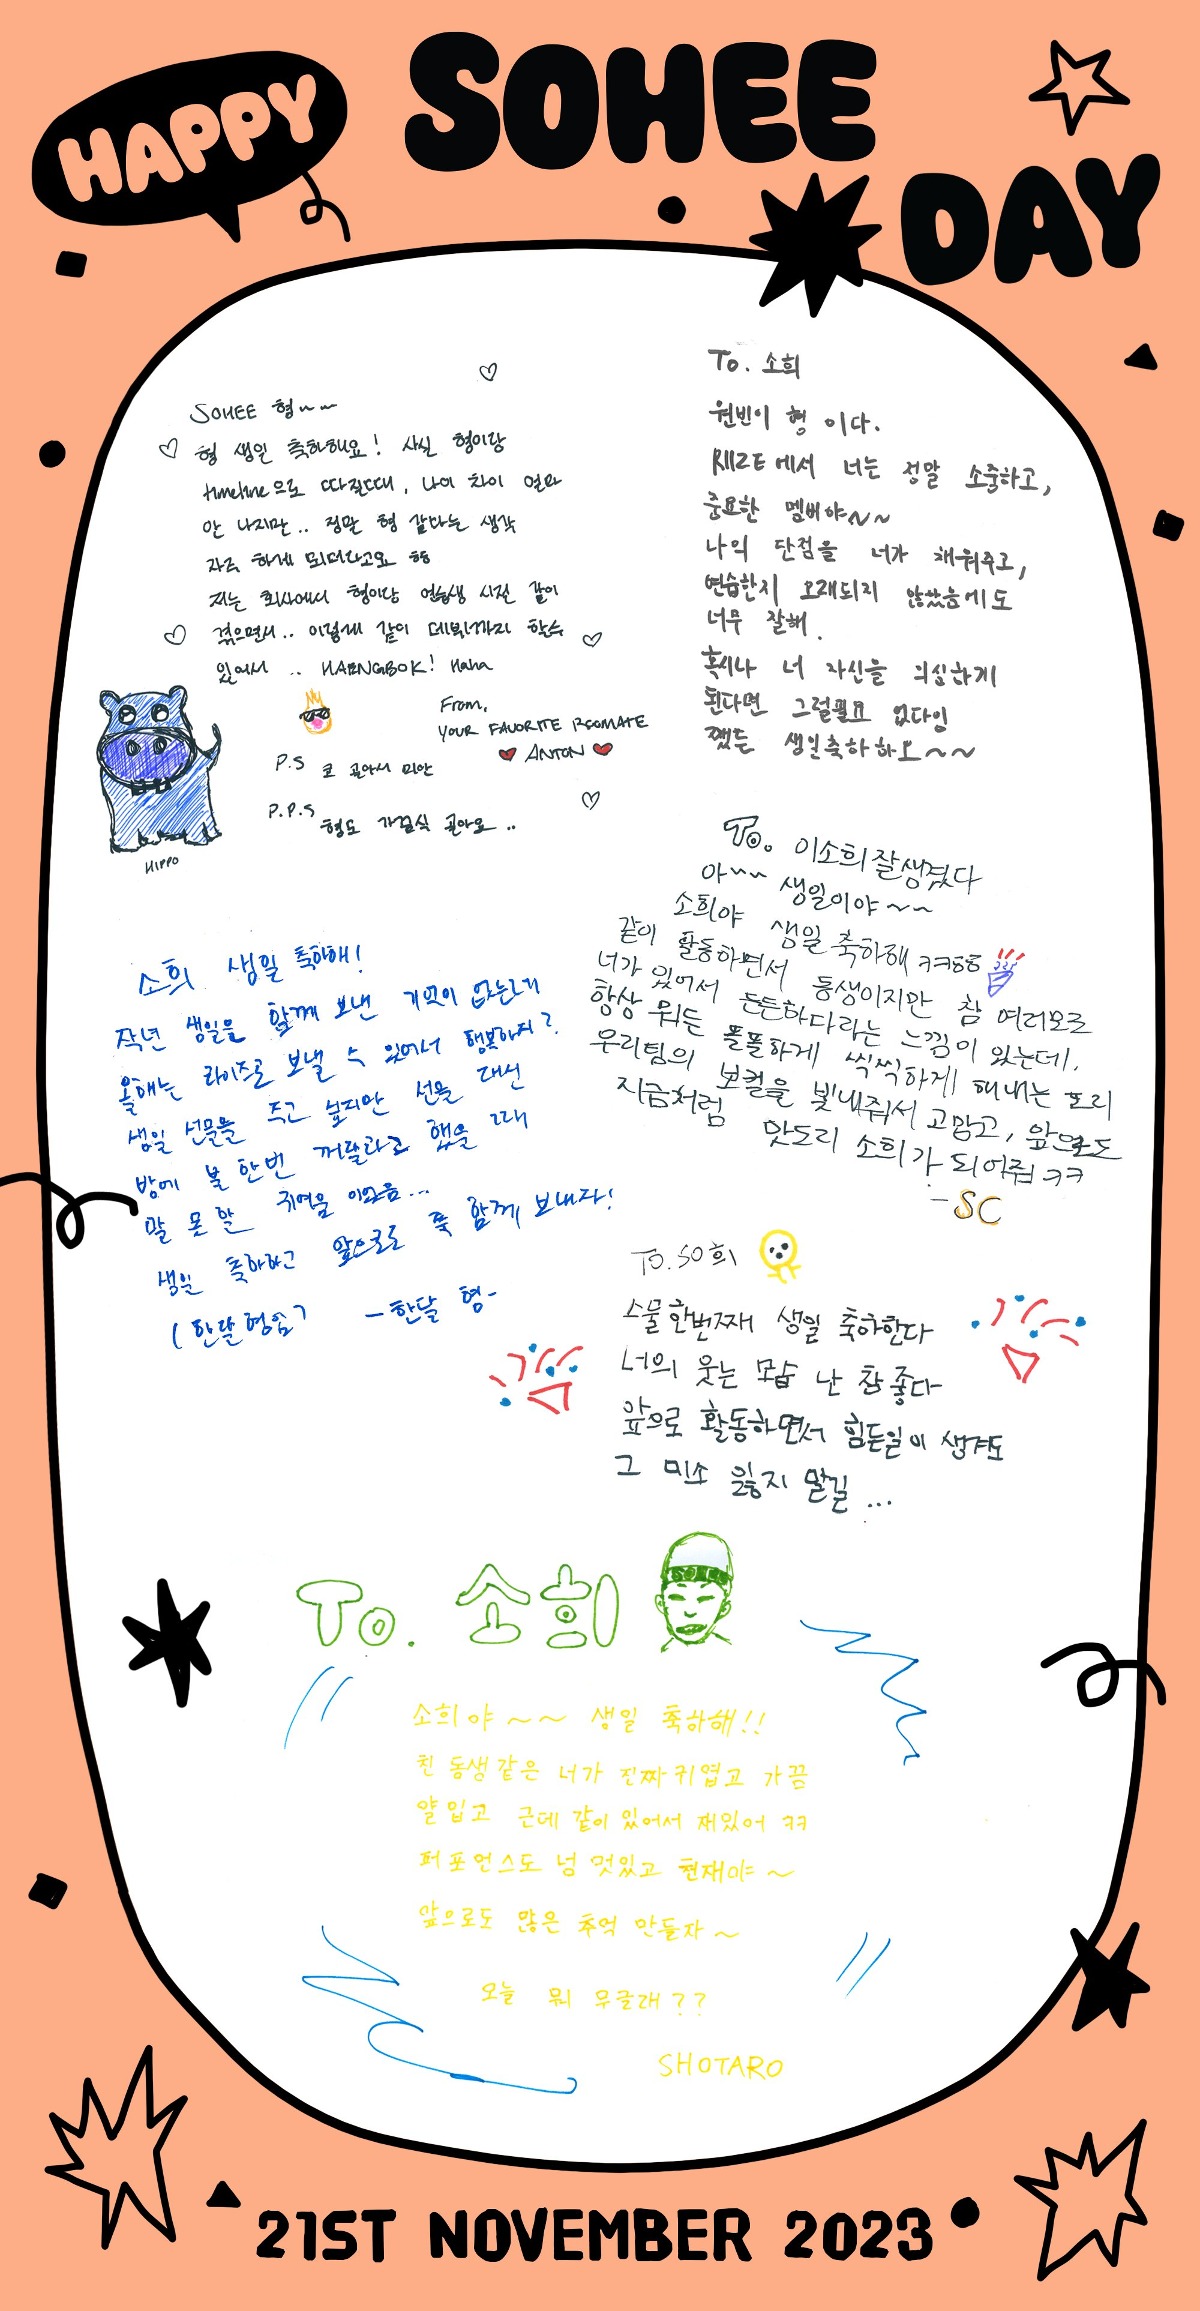 HAPPY
SOHEE
DAY
SOHEE 형~~
형 생일 축하해요! 사실 형이랑
timeline으로 따질때, 나이 차이 얼마
안 나지만.. 정말 형 같다는 생각
자주 하게 되더라고요 ㅎㅎ
저는 회사에서 형이랑 연습생 시절 같이
겪으면서.. 이렇게 같이 데뷔까지 할수
있어서 .. HAENGBOK! Haha
From,
YOUR FAVORITE ROOMATE
ANTON
P.S 코 골아서 미안
P.P.S 형도 가끔씩 골아요 ..
HIPPO
To. 소희
원빈이 형 이다.
RIIZE에서 너는 정말 소중하고,
중요한 멤버야~~
나의 단점을 너가 채워주고,
연습한지 오래되지 않았음에도
너무 잘해.
혹시나 너 자신을 의심하게
된다면 그럴필요 없다임
쨌든 생일축하하오~~
To. 이소희 잘생겼다
아~~ 생일이야~~
소희야 생일 축하해 ㅋㅋㅎㅎ
같이 활동하면서 동생이지만 참 여러모로
너가 있어서 든든하다라는 느낌이 있는데,
항상 뭐든 똘똘하게 씩씩하게 해내는 또리
우리팀의 보컬을 빛내줘서 고맙고, 앞으로도
지금처럼 맛도리 소희가 되어줘 ㅋㅋ
-SC
소희 생일 축하해!
작년 생일을 함께 보낸 기억이 없는데
올해는 라이즈로 보낼 수 있어서 행복하지?
생일 선물을 주고 싶지만 선물 대신
방에 불 한번 꺼달라고 했을 때
말 못할 귀여움 이었음...
생일 축하하고 앞으로도 쭉 함께 보내자!
(한달형임) -한달 형-
TO.SO희
스물한번째 생일 축하한다
너의 웃는 모습 난 참 좋다
앞으로 활동하면서 힘든일이 생겨도
그 미소 잃지 말길 ...
To. 소희
소희야~~ 생일 축하해!!
친동생같은 너가 진짜 귀엽고 가끔
얄밉고 근데 같이 있어서 재밌어 ㅋㅋ
퍼포먼스도 넘 멋있고 천재야~
앞으로도 많은 추억 만들자~
오늘 뭐 무글래??
SHOTARO
21ST NOVEMBER 2023